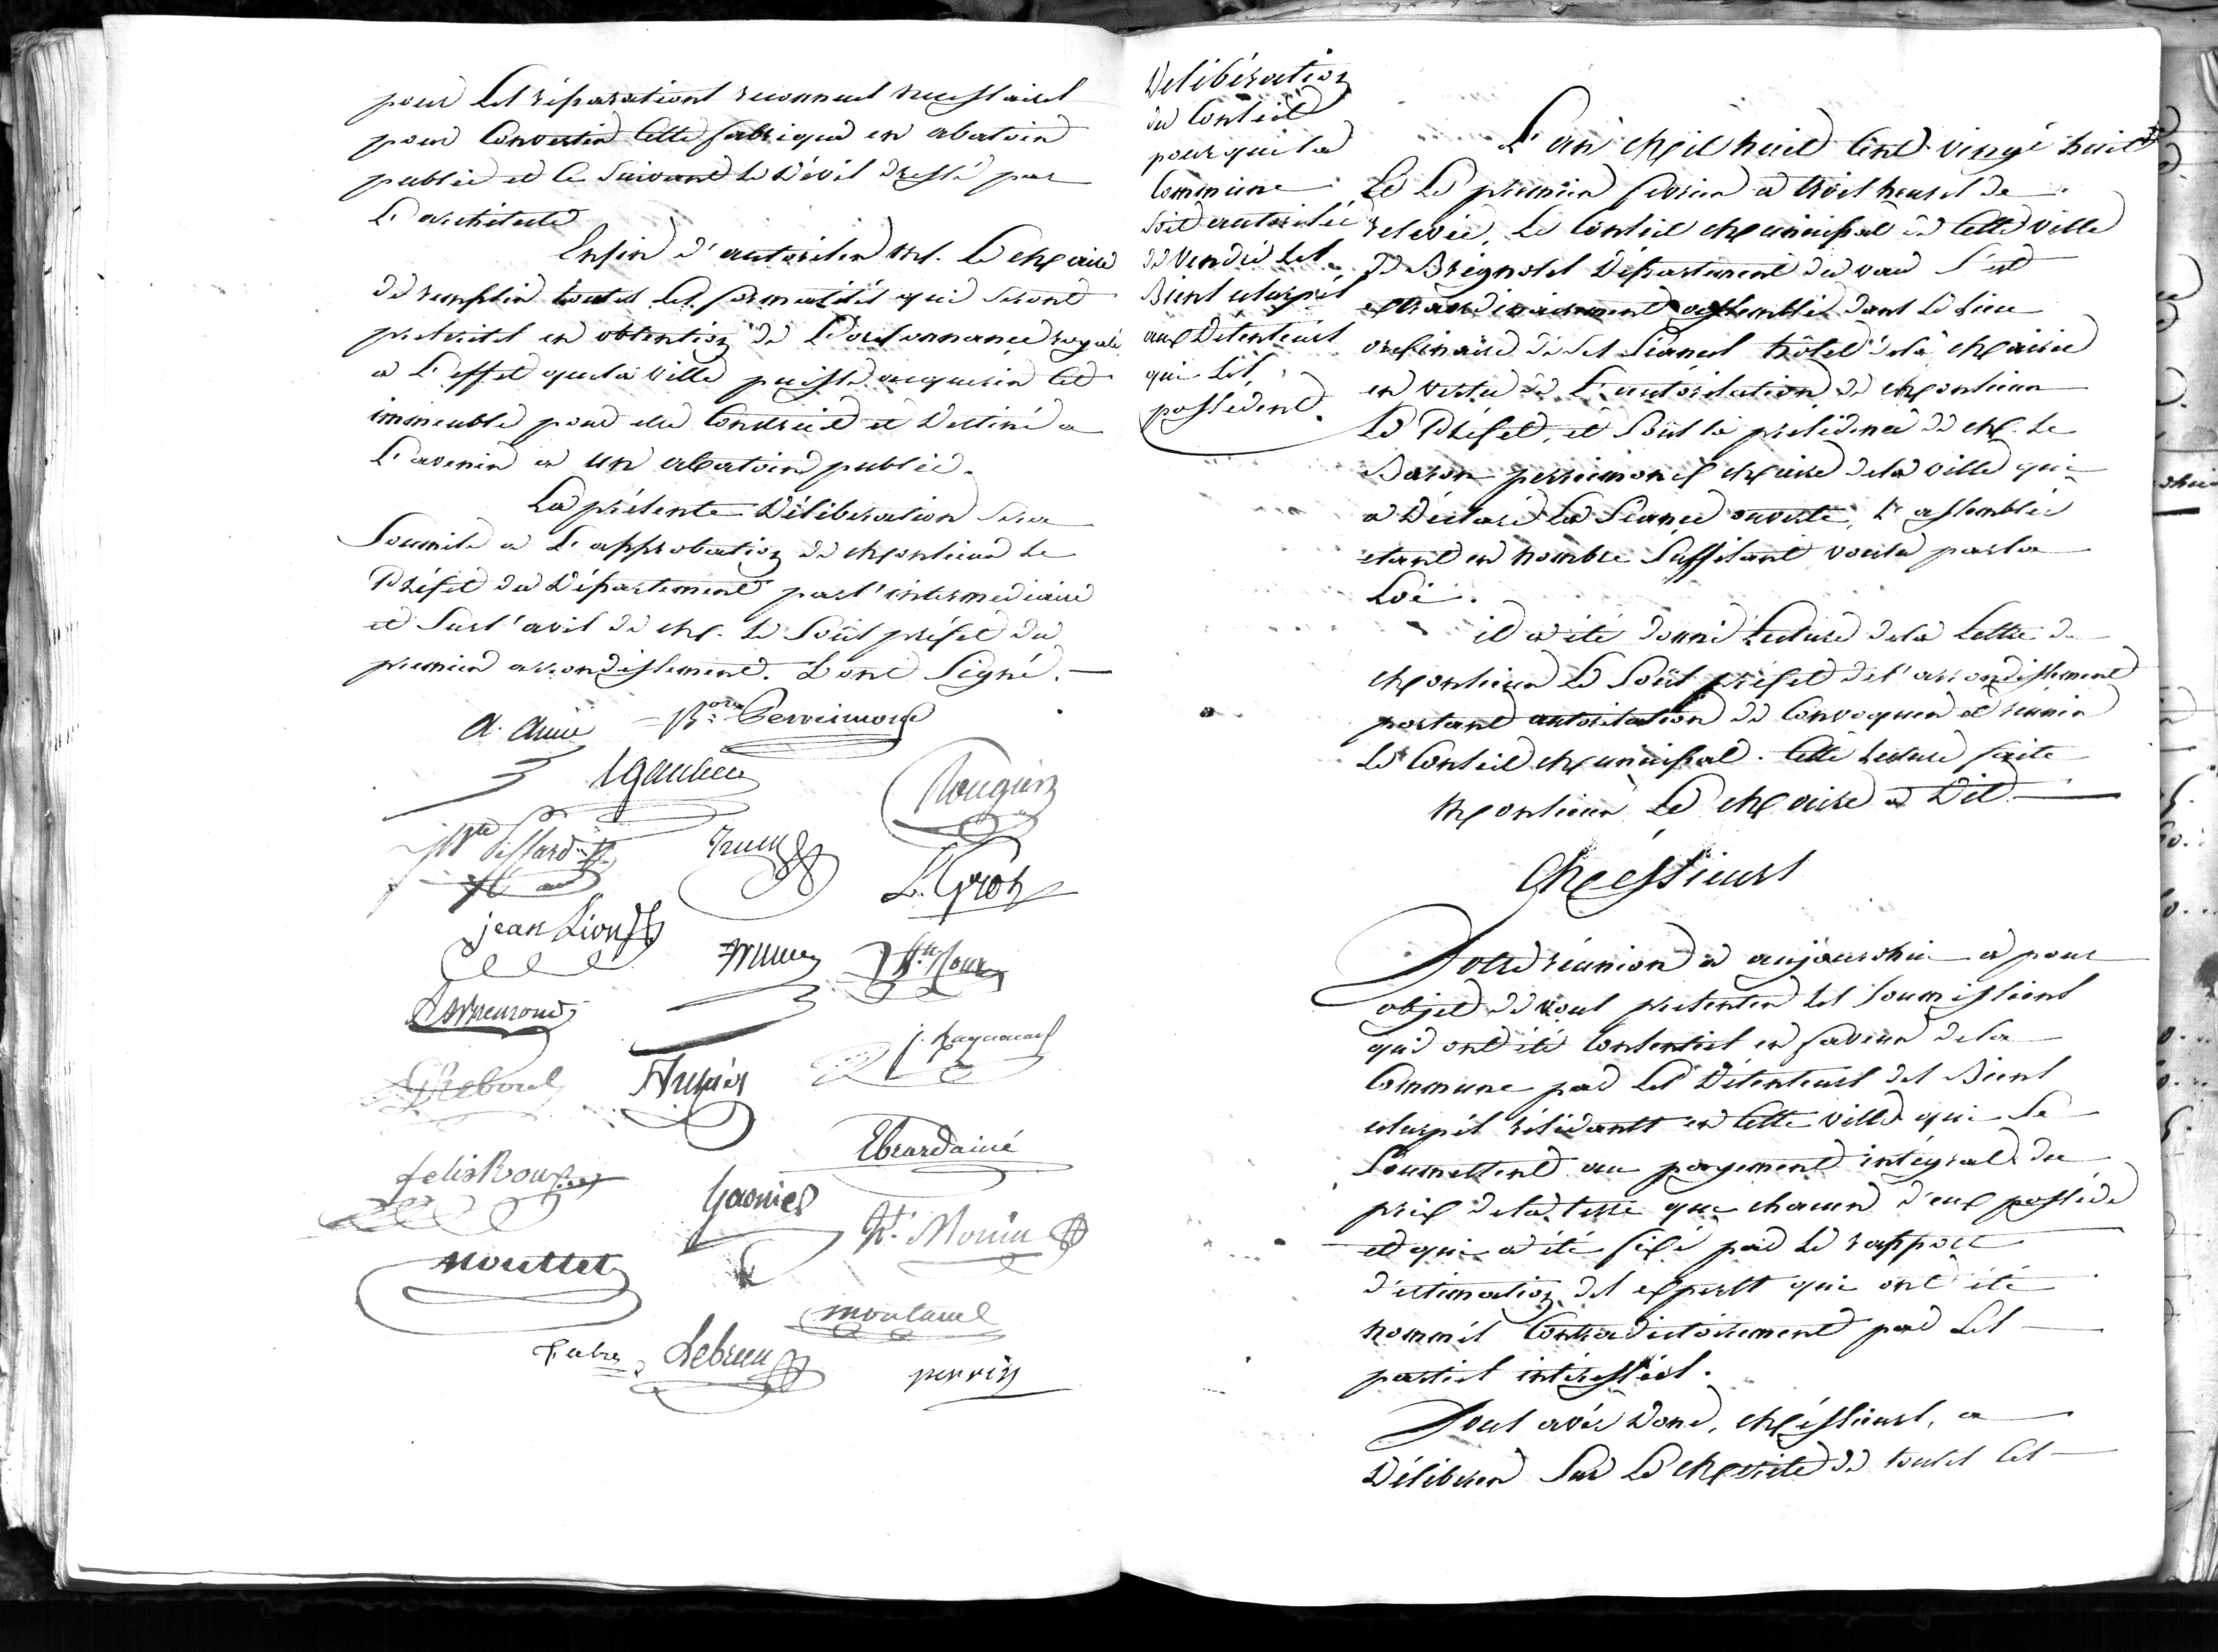 pour les réparations reconnues necessaires
pour convertir cette fabrique en abatoir
public et ce suivant le dévis dressé par
L'architecte
Enfin d'autoriser Mr. Le Maire
de remplir toutes les formalités qui seront
prescrites en obtention de L'ordonnance royale
a L'effet que la ville puisse acquerir cet
immeuble pour être construit et destiné a
L'avenir a un abatoir public.
La présente Délibération sera
Soumise a L'approbation de Monsieur le
Préfet du Département par l'intermediaire
et sur l'avis de M. le Sous préfet du
premier arrondissement. Dont Signé. —
Bon Perrimond
Rougier
Truc
L. Gros
jean Lion
Reboul
felix Roux
Ebrard ainé
Garnier
Mouttet
Fabre
Lebrun
perrin
Delibération
du Conseil
pour que la
Commune
soit autorisée
de vendre les
Biens usurpés
aux Détenteurs
qui les
possedent.
L'an Mil huit Cent vingt huit
et Le premier fevrier a trois heures de
relevée, Le Conseil Municipal de cette ville
de Brignoles Département du var s'est
extraordinairement assemblé dans le lieu
ordinaire de ses séances hôtel de la Mairie
en vertu de L'autorisation de Monsieur
Le Préfet, et sous la présidence de M. Le
Baron perrimond Maire de la ville qui
a déclaré la Séance ouverte, L'assemblée
etant en nombre suffisant voulu par la
Loi.
il a été donné Lecture de la Lettre de
Monsieur Le Sous préfet de l'arrondissement
portant autorisation de Convoquer et réunir
Le Conseil Municipal. Cette Lecture faite
Monsieur Le Maire a Dit —
Messieurs
Votre réunion d'aujourdhui a pour
objet de vous presenter les soumissions
qui ont été consenties en faveur de la
Commune par les Détenteurs des Biens
usurpés résidants en cette ville qui se
soumettent au payement intégral du
prix de la terre que chacun d'eux possède
et qui a été fixé par le rapport
d'estimation des experts qui ont été
nommés Contradictoirement par les
parties intéressées.
Vous avés donc, Messieurs, a
Délibérer sur le Mérite de toutes ces